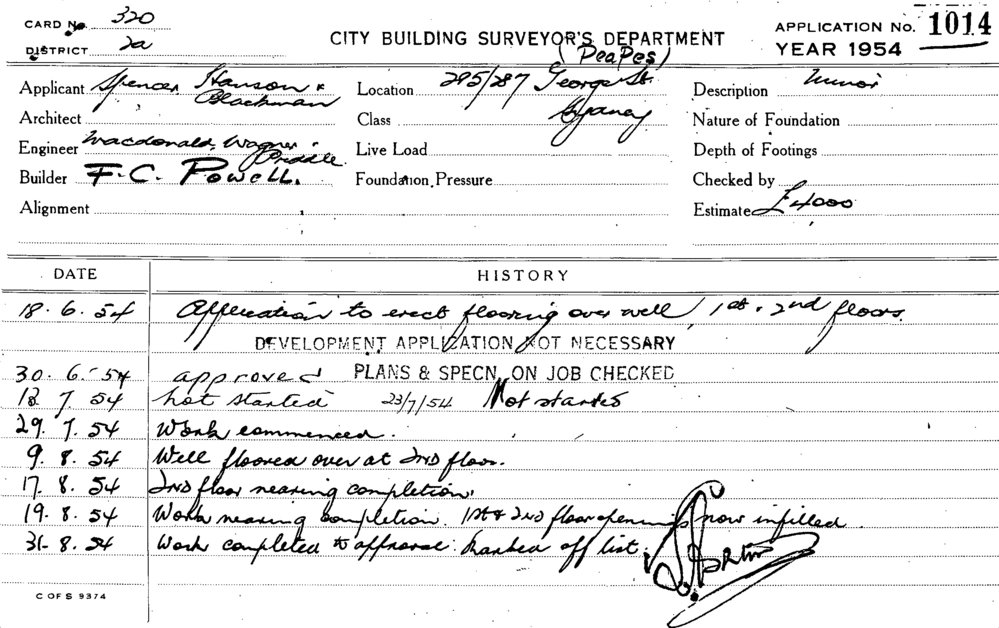 CARD No. 320
DISTRICT 2a
CITY BUILDING SURVEYOR'S DEPARTMENT
(Peapes)
APPLICATION No. 1014
YEAR 1954
Applicant Spencer, Hanson & Blackman
Location 285/287 George St. Sydney
Description Minor
Architect
Class
Nature of Foundation
Engineer Macdonald, Wagner & Priddle
Live Load
Depth of Footings
Builder F.C. Powell.
Foundation Pressure
Checked by
Alignment
Estimate £4000
DATE HISTORY
18.6.54 Application to erect flooring over well, 1st & 2nd floors.
DEVELOPMENT APPLICATION NOT NECESSARY
30.6.54 approved PLANS & SPECN. ON JOB CHECKED
12.7.54 Not started 23/7/54 Not started
29.7.54 Work commenced.
9.8.54 Well floored over at 2nd floor.
17.8.54 2nd floor nearing completion.
19.8.54 Work nearing completion. 1st & 2nd floor openings now infilled.
31.8.54 Work completed to approval. Marked off list.
C OF S 9374